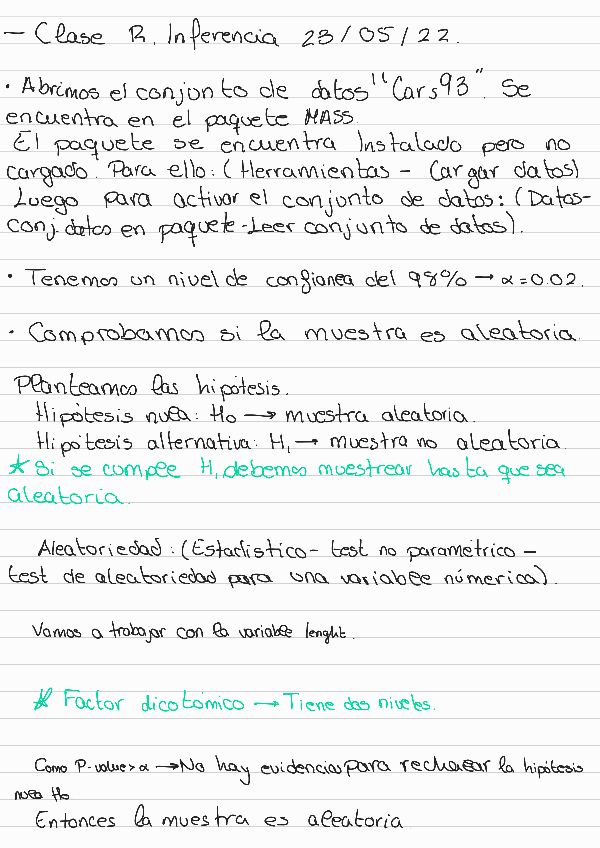 — Clase R. Inferencia 23/05/22.
· Abrimos el conjunto de datos "Cars93". Se
encuentra en el paquete MASS.
El paquete se encuentra Instalado pero no
cargado. Para ello: (Herramientas - Cargar datos)
Luego para activar el conjunto de datos: (Datos-
conj. datos en paquete-Leer conjunto de datos).
· Tenemos un nivel de confianza del 98% → α=0.02.
· Comprobamos si la muestra es aleatoria.
Planteamos las hipótesis.
Hipótesis nula: H₀ → muestra aleatoria.
Hipótesis alternativa: H₁ → muestra no aleatoria.
* Si se cumple H₁ debemos muestrear hasta que sea
aleatoria.
Aleatoriedad: (Estadístico- test no paramétrico -
test de aleatoriedad para una variable númerica).
Vamos a trabajar con la variable lenght.
* Factor dicotómico → Tiene dos niveles.
Como P-value > α → No hay evidencias para rechazar la hipótesis
nula H₀
Entonces la muestra es aleatoria